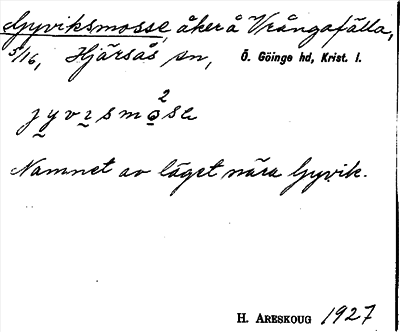 Gyviksmosse, åker å Vrångafälla,
5/16, Hjärsås sn, Ö. Göinge hd, Krist. l.
2
Namnet av läget nära Gyvik.
H. ARESKOUG 1927